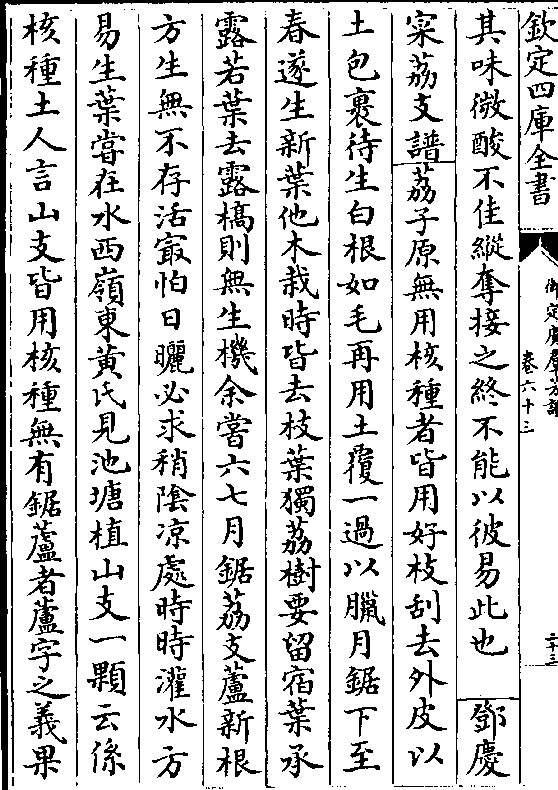 欽定四庫全書
御定廣羣芳譜
卷六十三
二十三
其味微酸不佳縱奪接之終不能以彼易此也 鄧慶
寀荔支譜荔子原無用核種者皆用好枝刮去外皮以
土包裹待生白根如毛再用土覆一過以臘月鋸下至
春遂生新葉他木栽時皆去枝葉獨荔樹要留宿葉承
露若葉去露槁則無生機余嘗六七月鋸荔支蘆新根
方生無不存活㝡怕日曬必求稍陰凉處時時灌水方
易生葉嘗在水西嶺東黄氏見池塘植山支一顆云係
核種土人言山支皆用核種無有鋸蘆者蘆字之義果